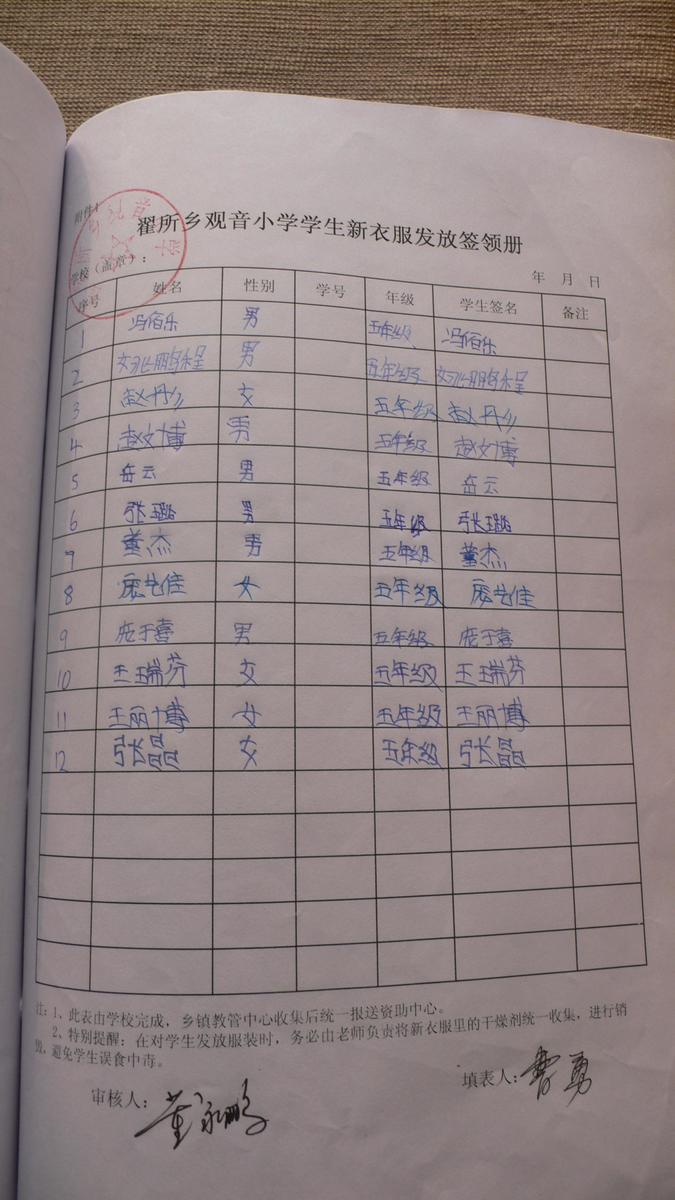 附件1
翟所乡观音小学学生新衣服发放签领册
学校（盖章）：
年 月 日
序号 姓名 性别 学号 年级 学生签名 备注
1 冯佰乐 男 五年级 冯佰乐
2 鹏程 男 五年级 鹏程
3 赵丹 女 五年级 赵丹
4 赵文博 男 五年级 赵文博
5 岳云 男 五年级 岳云
6 张璐 男 五年级 张璐
7 董杰 男 五年级 董杰
8 庞艺佳 女 五年级 庞艺佳
9 庞于喜 男 五年级 庞于喜
10 王瑞芬 女 五年级 王瑞芬
11 王丽博 女 五年级 王丽博
12 张晶 女 五年级 张晶
注：1、此表由学校完成，乡镇教管中心收集后统一报送资助中心。
2、特别提醒：在对学生发放服装时，务必由老师负责将新衣服里的干燥剂统一收集，进行销
毁，避免学生误食中毒。
填表人：曹勇
审核人：董永鹏